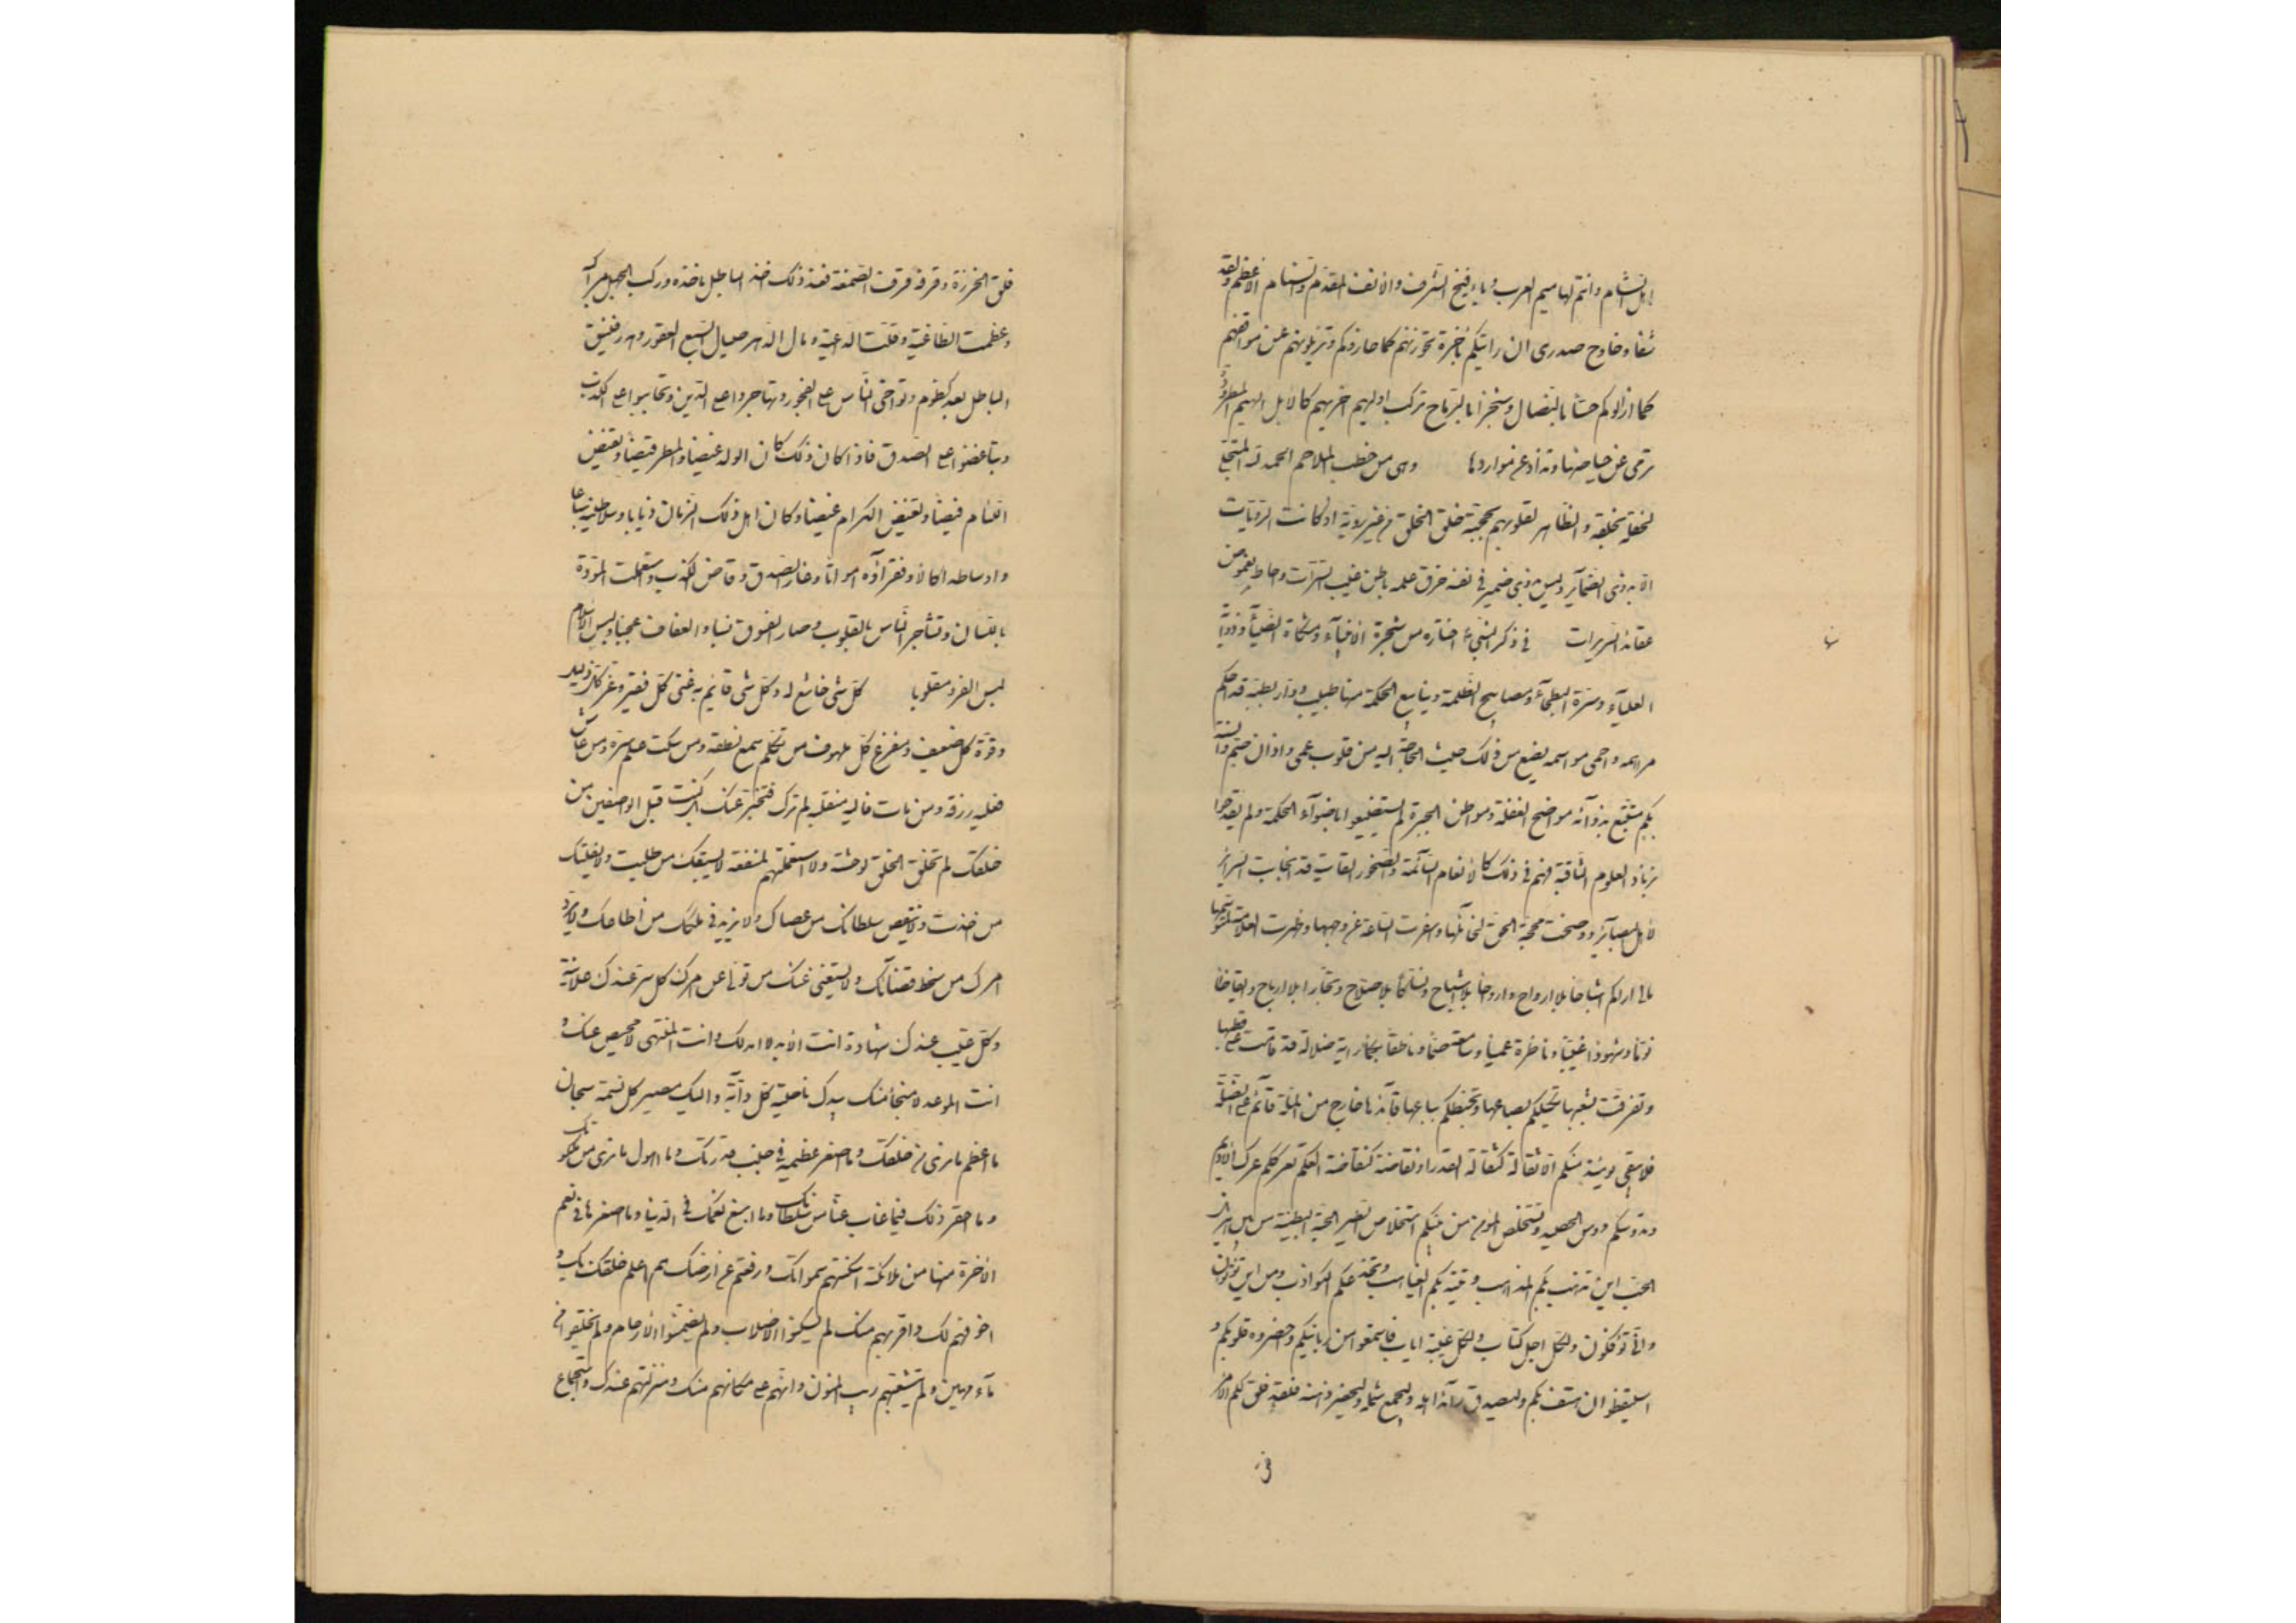 اهل الشام وانتم لهاميم العرب ويآفيخ الشرف والانف المقدم والسنام الاعظم ولقد
شفا وحاوح صدرى ان رايتكم باخرة تحوزونهم كما حازوكم وتزيلونهم عن مواقفهم
كما ازالوكم حسّا بالنصال وشجرا بالرّماح تركب اوليهم اخريهم كالابل الهيم المطرودة
ترمى عن حياضها وتذاد عن مواردها وهى من خطب الملاحم الحمد لله المتجلى
لخلقه بخلقه والظاهر لقلوبهم بحجته خلق الخلق من غير روية اذ كانت الرويّات
لا بذوى الضمآئر وليس بذى ضمير فى نفسه خرق علمه باطن غيب السترات واحاط بغموض
عقائد السّريرات فى ذكر النّبىّ اختاره من شجرة الانبيآء ومشكاة الضّيآء وذؤابة
العليآء وسرّة البطحآء ومصابيح الظّلمة وينابيع الحكمة منها طبيب دوّار بطبّه قد احكم
مراهمه واحمى مواسمه يضع من ذلك حيث الحاجة اليه من قلوب عمى واذان صمّ والسنة
بكم متتبّع بدوآئه مواضع الغفلة ومواطن الحيرة لم يستضيئوا باضوآء الحكمة ولم يقدحوا
بزناد العلوم الثّاقبة فهم فى ذلك كالانعام السّآئمة والصّخور القاسية قد انجابت السّرائر
لاهل البصآئر ووضحت محجّة الحقّ لخابطها واسفرت السّاعة عن وجهها وظهرت العلامة لمتوسّمها
مالى اراكم اشباحا بلا ارواح وارواحا بلا اشباح ونسّاكا بلا صلاح وتجّارا بلا ارباح وايقاظا
نوّما وشهودا غيّبا وناظرة عميا وسامعة صمّا وناطقة بكما راية ضلالة قد قامت على قطبها
وتفرّقت بشعبها تكيلكم بصاعها وتخبطكم بباعها قآئدها خارج من الملّة قآئم على الضّلّة
فلا يبقى يومئذ منكم الّا ثفالة كثفالة القدر او نفاضة كنفاضة العكم تعرككم عرك الاديم
وتدوسكم دوس الحصيد وتستخلص المؤمن من بينكم استخلاص الطّير الحبّة البطينة من بين هزيل
الحبّ اين تذهب بكم المذاهب وتتيه بكم الغياهب وتخدعكم الكواذب ومن اين تؤتون
وانّى تؤفكون ولكلّ اجل كتاب ولكلّ غيبة اياب فاستمعوا من ربّانيّكم واحضروه قلوبكم و
استيقظوا ان هتف بكم وليصدق رآئد اهله وليجمع شمله وليحضر ذهنه فلقد فلق لكم الامر
فلق الخرزة وقرفه قرف الصّمغة فعند ذلك اخذ الباطل مآخذه وركب الجهل مراكبه
وعظمت الطّاغية وقلّت الدّاعية وصال الدّهر صيال السّبع العقور وهدر فنيق
الباطل بعد كظوم وتواخى النّاس على الفجور وتهاجروا على الدّين وتحابّوا على الكذب
وتباغضوا على الصّدق فاذا كان ذلك كان الولد غيضا والمطر قيضا وتفيض
اللّئام فيضا وتغيض الكرام غيضا وكان اهل ذلك الزّمان ذئابا وسلاطينه سباعا
واوساطه اكالا وفقرآؤه امواتا وغار الصّدق وفاض الكذب واستعملت المودّة
باللّسان وتشاجر النّاس بالقلوب وصار الفسوق نسبا والعفاف عجبا ولبس الاسلام
لبس الفرو مقلوبا كلّ شىء خاشع له وكلّ شىء قائم به غنى كلّ فقير وعزّ كلّ ذليل
وقوّة كلّ ضعيف ومفزع كلّ ملهوف من تكلّم سمع نطقه ومن سكت علم سرّه ومن عاش
فعليه رزقه ومن مات فاليه منقلبه لم ترك فتخبر عنك بل كنت قبل الواصفين من
خلقك لم تخلق الخلق لوحشة ولا استعملتهم لمنفعة لا يسبقك من طلبت ولا يفلتك
من اخذت ولا ينقص سلطانك من عصاك ولا يزيد فى ملكك من اطاعك ولا يردّ
امرك من سخط قضآئك ولا يستغنى عنك من تولّى عن امرك كلّ سرّ عندك علانية
وكلّ غيب عندك شهادة انت الابد لا امد لك وانت المنتهى لا محيص عنك و
انت الموعد لا منجأ منك بيدك ناصية كلّ دآبّة واليك مصير كلّ نسمة سبحانك
ما اعظم ما نرى من خلقك وما اصغر عظيمه فى جنب قدرتك وما اهول ما نرى من ملكوتك
وما احقر ذلك فيما غاب عنّا من سلطانك وما اسبغ نعمك فى الدّنيا وما اصغرها فى نعم
الاخرة منها من ملائكة اسكنتهم سمواتك ورفعتهم عن ارضك هم اعلم خلقك بك و
اخوفهم لك واقربهم منك لم يسكنوا الاصلاب ولم يضمّنوا الارحام ولم يخلقوا من
مآء مهين ولم يشعبهم ريب المنون وانّهم على مكانهم منك ومنزلتهم عندك واستجماع